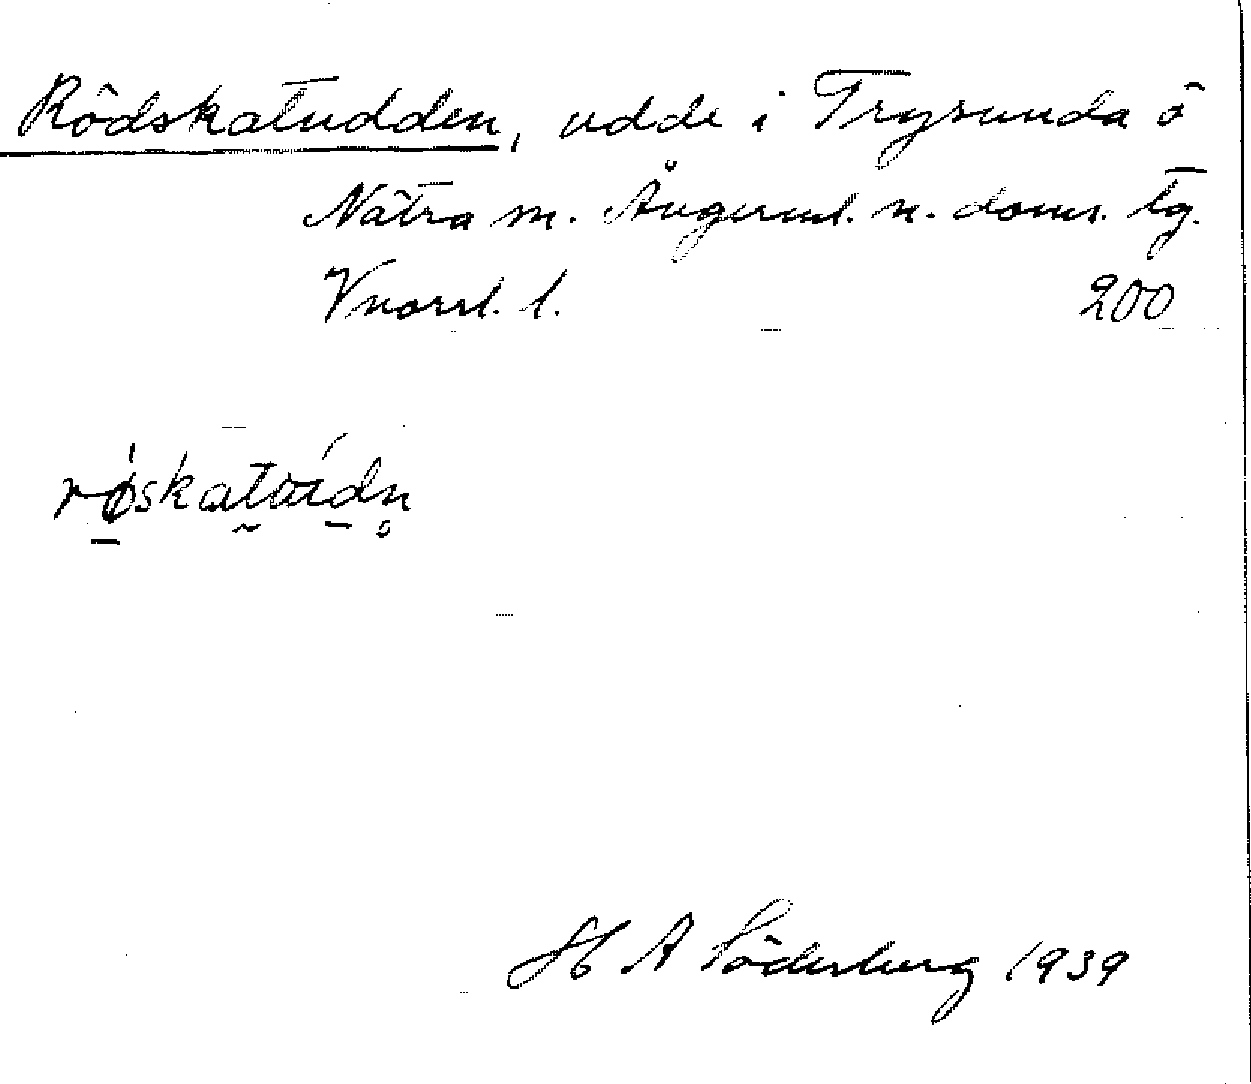 Rödskatudden, udde i Trysunda ö
Nätra sn. Ångerml. n. doms. tg.
Vnorrl. l. 200
H A Söderberg 1939